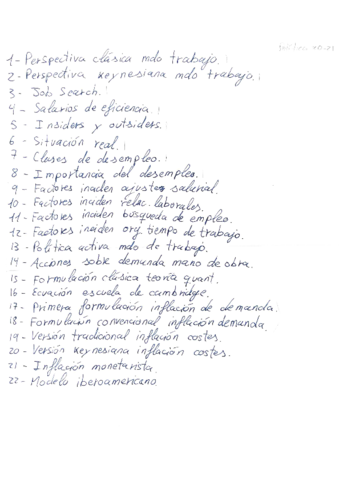 1- Perspectiva clásica mdo trabajo.
2- Perspectiva keynesiana mdo trabajo.
3- Job Search.
4- Salarios de eficiencia.
5- Insiders y outsiders.
6- Situación real.
7- Clases de desempleo.
8- Importancia del desempleo.
9- Factores inciden ajustes salarial.
10- Factores inciden relac. laborales.
11- Factores inciden búsqueda de empleo.
12- Factores inciden org. tiempo de trabajo.
13- Política activa mdo de trabajo.
14- Acciones sobre demanda mano de obra.
15- Formulación clásica teoría quant.
16- Ecuación escuela de cambridge.
17- Primera formulación inflación de demanda.
18- Formulación convencional inflación demanda.
19- Versión tradicional inflación costes.
20- Versión keynesiana inflación costes.
21- Inflación monetarista.
22- Modelo iberoamericano